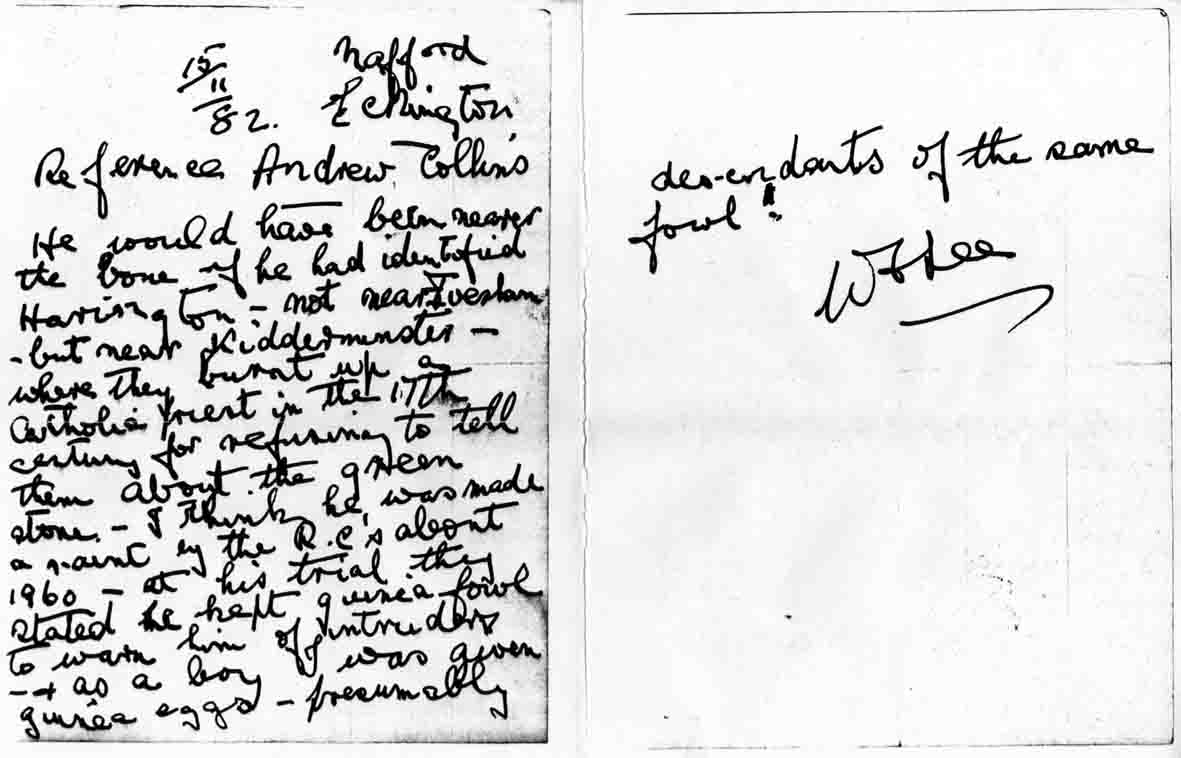 15/11/82.
Nafford
Eckington
Reference Andrew Collins
He would have been nearer
the bone if he had identified
Harington - not near Evesham
- but near Kidderminster -
where they burnt up a
Catholic priest in the 17th
century for refusing to tell
them about the green
stone. - I think he was made
a saint by the R.C's about
1960 - at his trial they
stated he kept guinea fowl
to warn him off intruders
- + as a boy I was given
guinea eggs - presumably
descendants of the same
fowl!
W F Lee